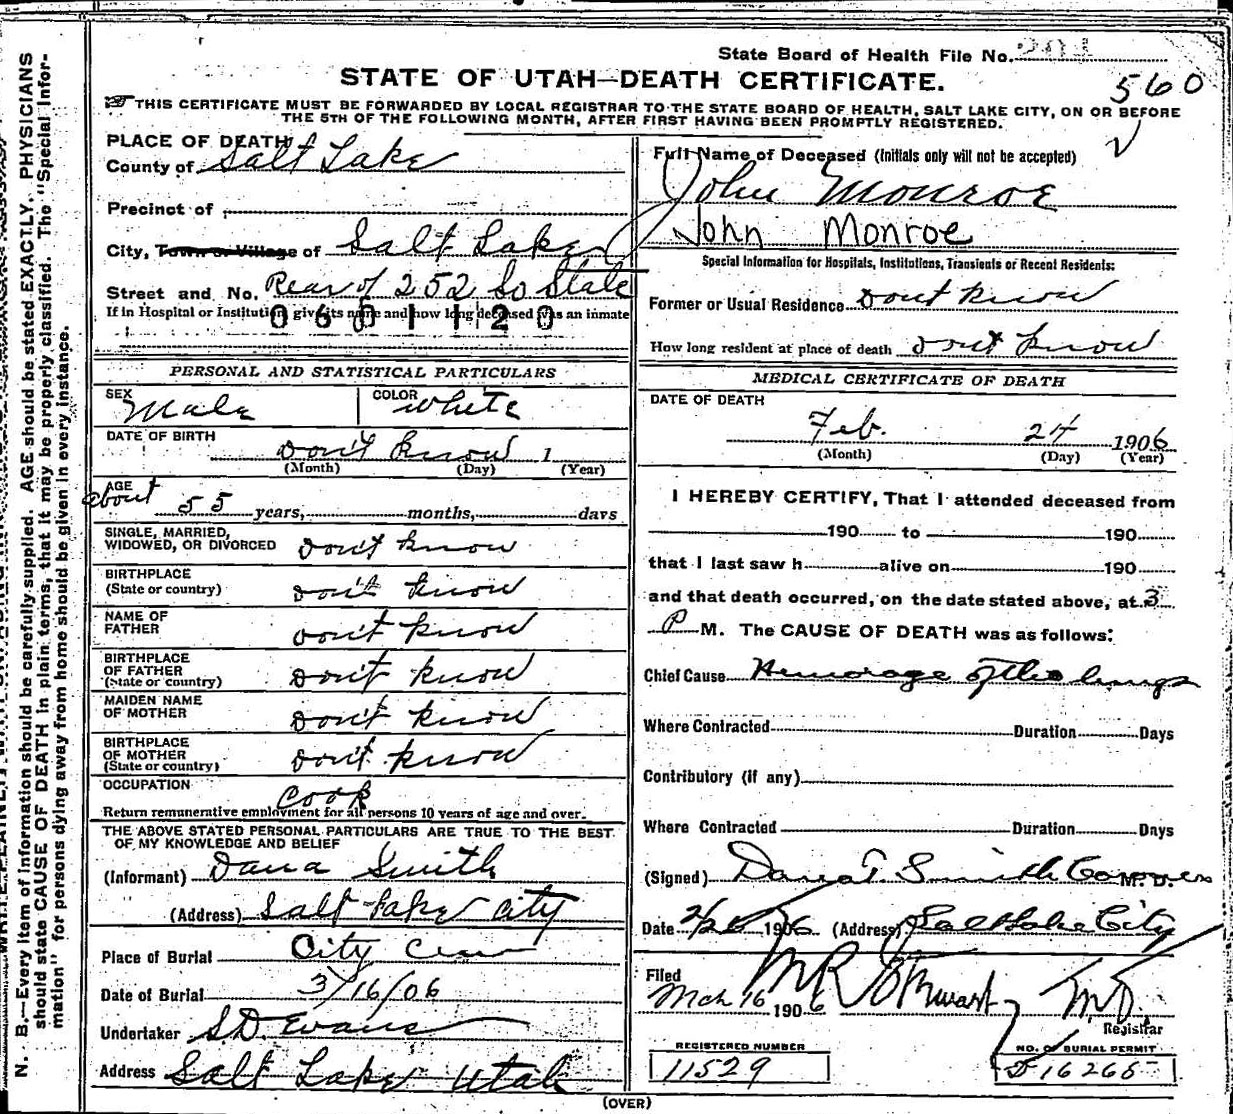 State Board of Health File No. 201
560
STATE OF UTAH—DEATH CERTIFICATE.
THIS CERTIFICATE MUST BE FORWARDED BY LOCAL REGISTRAR TO THE STATE BOARD OF HEALTH, SALT LAKE CITY, ON OR BEFORE
THE 5TH OF THE FOLLOWING MONTH, AFTER FIRST HAVING BEEN PROMPTLY REGISTERED.
PLACE OF DEATH
County of Salt Lake
Precinct of
City, Town or Village of Salt Lake
Street and No. Rear of 252 So State
If in Hospital or Institution give its name and how long deceased was an inmate
0601120
PERSONAL AND STATISTICAL PARTICULARS
SEX Male COLOR White
DATE OF BIRTH Don't know 1
(Month) (Day) (Year)
AGE
about 55 years, months, days
SINGLE, MARRIED,
WIDOWED, OR DIVORCED Don't know
BIRTHPLACE
(State or country) don't know
NAME OF
FATHER don't know
BIRTHPLACE
OF FATHER
(State or country) don't know
MAIDEN NAME
OF MOTHER don't know
BIRTHPLACE
OF MOTHER
(State or country) don't know
OCCUPATION Cook
Return remunerative employment for all persons 10 years of age and over.
THE ABOVE STATED PERSONAL PARTICULARS ARE TRUE TO THE BEST
OF MY KNOWLEDGE AND BELIEF
(Informant) Dana Smith
(Address) Salt Lake City
Place of Burial City Cem
Date of Burial 3/16/06
Undertaker S.D. Evans
Address Salt Lake Utah
Full Name of Deceased (Initials only will not be accepted)
John Monroe
John Monroe
Special Information for Hospitals, Institutions, Transients or Recent Residents:
Former or Usual Residence Dont know
How long resident at place of death dont know
MEDICAL CERTIFICATE OF DEATH
DATE OF DEATH
Feb. 24 1906
(Month) (Day) (Year)
I HEREBY CERTIFY, That I attended deceased from
190 to 190
that I last saw h alive on 190
and that death occurred, on the date stated above, at 3
P M. The CAUSE OF DEATH was as follows:
Chief Cause Hemorage of the lungs
Where Contracted Duration Days
Contributory (if any)
Where Contracted Duration Days
(Signed) Dana T. Smith Coroner M. D.
Date 1906 (Address) Salt Lake City
Filed
Mch 16 1906 M R Stewart M.D.
Registrar
REGISTERED NUMBER
11529
NO. OF BURIAL PERMIT
D 16265
(OVER)
N. B.—Every item of information should be carefully supplied. AGE should be stated EXACTLY. PHYSICIANS
should state CAUSE OF DEATH in plain terms, that it may be properly classified. The "Special Infor-
mation" for persons dying away from home should be given in every instance.